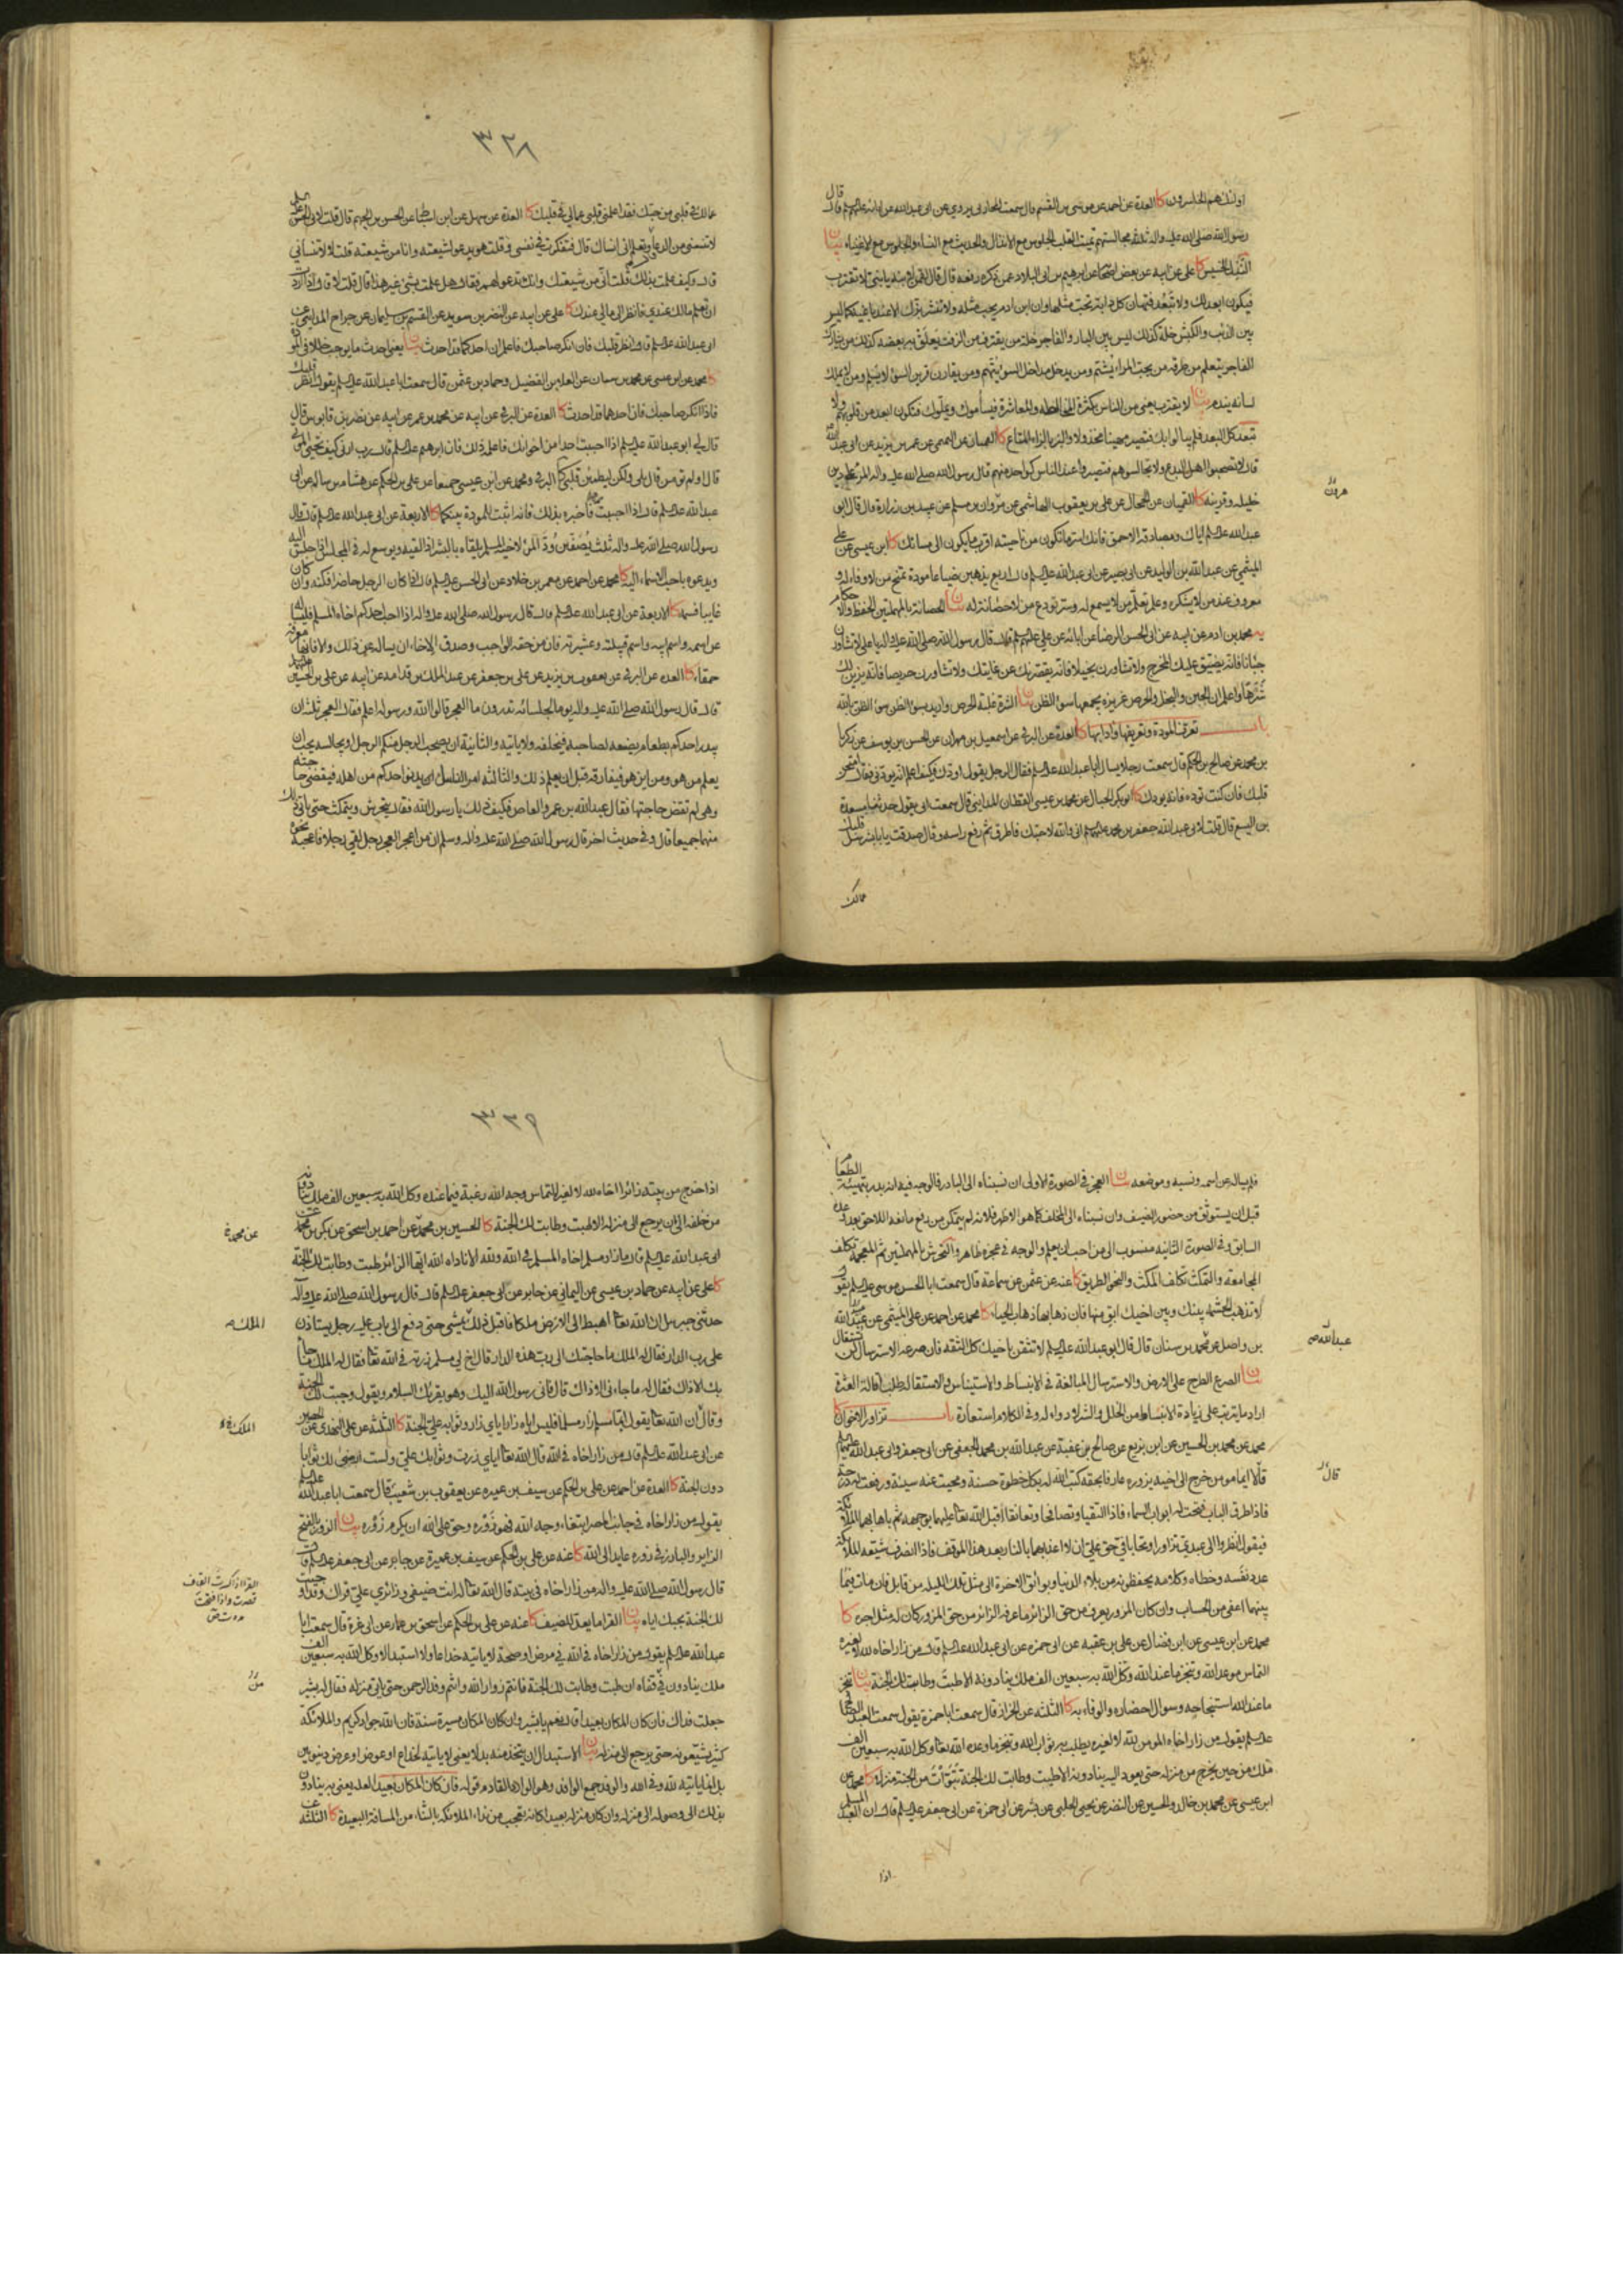 اولئك هم الخاسرون كا العدة عن احمد عن موسى بن القسم قال سمعت المحاربى يروى عن ابى عبدالله عن ابائه عليهم السلم قال قال
رسول الله صلى الله عليه واله ثلثة مجالستهم تميت القلب الجلوس مع الانذال والحديث مع النساء والجلوس مع الاغنياء بيان
النذل الخسيس كا على عن ابيه عن بعض اصحابه عن ابرهيم بن ابى البلاد عمن ذكره رفعه قال قال لقمن لابنه يا بنى لا تقترب
فيكون ابعد لك ولا تبعد فتهان كل دابة تحب مثلها وان ابن ادم يحب مثله ولا تنشر بزك الا عند باغيه كما ليس
بين الذئب والكبش خلة كذلك ليس بين البار والفاجر خلة من يقترب من الزفت يعلق به بعضه كذلك من يشارك
الفاجر يتعلم من طرقه من يحب المراء يشتم ومن يدخل مداخل السوء يتهم ومن يقارن قرين السوء لا يسلم ومن لا يملك
لسانه يندم بيان لا يقترب يعنى من الناس بكثرة المخالطة والمعاشرة فيسأموك ويملوك فتكون ابعد من قلوبهم ولا
تبعد كل البعد فلم يبالوا بك فتصير مهينا مخذولا والبز بالزاء المتاع كا
قال لا تصحبوا اهل البدع ولا تجالسوهم فتصيروا عند الناس كواحد منهم قال رسول الله صلى الله عليه واله المرء على دين
خليله وقرينه كا القميان عن الحجال عن على بن يعقوب الهاشمى عن مروان بن مسلم عن عبيد بن زرارة قال قال ابو
عبدالله عليه السلم اياك ومصادقة الاحمق فانك اسر ما تكون من ناحيته اقرب ما يكون الى مسائتك كا ابن عيسى عن على
الميثمى عن عبدالله بن الوليد عن ابى بصير عن ابى عبدالله عليه السلم قال اربع يذهبن ضياعا مودة تمنح من لا وفاء له و
معروف عند من لا يشكره وعلم تعلم من لا يسمع له وسر تودع من لا حصانة له بيان الحصانة بالمهملتين الحفظ والاحكام
يه محمد بن ادم عن ابيه عن ابى الحسن الرضا عن ابائه عن على عليهم السلم قال قال رسول الله صلى الله عليه واله يا على لا تشاورن
جبانا فانه يضيق عليك المخرج ولا تشاورن بخيلا فانه يقصر بك عن غايتك ولا تشاورن حريصا فانه يزين لك
شرهما واعلم ان الجبن والبخل والحرص غريزة يجمعها سوء الظن بيان الشره غلبة الحرص واريد بسوء الظن سوء الظن بالله
باب تعرف المودة وتعريفها وادابها كا العدة عن البرقى عن اسمعيل بن مهران عن الحسن بن يوسف عن زكريا
بن محمد عن صالح بن الحكم قال سمعت رجلا يسال ابا عبدالله عليه السلم فقال الرجل يقول اودك فكيف اعلم انه يودنى فقال امتحن
قلبك فان كنت توده فانه يودك كا ابو بكر الحبال عن محمد بن عيسى القطان المداينى قال سمعت ابى يقول حدثنا مسعدة
بن اليسع قال قلت لابى عبدالله جعفر بن محمد عليهما السلم انى والله لاحبك فاطرق ثم رفع راسه وقال صدقت يا با بشر سل قلبك
عمالك
هرون
٣٢٨
عمالك فى قلبى من حبك فقد اعلمنى قلبى عما لى فى قلبك كا العدة عن سهل عن ابن اسباط عن الحسن بن الجهم قال قلت لابى الحسن عليه السلم
لا تنسنى من الدعاء قال وتعلم انى انساك قال فتفكرت فى نفسى وقلت هو يدعو لشيعته وانا من شيعته قلت لا لا تنسانى
قال وكيف علمت بذلك قلت انى من شيعتك وانك تدعو لهم فقال هل علمت بشئ غير هذا قال قلت لا قال اذا اردت
ان تعلم مالك عندى فانظر الى مالى عندك كا على عن ابيه عن النضر بن سويد عن القسم بن سليمان عن جراح المداينى عن
ابى عبدالله عليه السلم قال انظر قلبك فان انكر صاحبك فاعلم ان احدكما قد احدث بيان يعنى احدث ما يوجب خللا فى المودة
كا محمد عن ابن عيسى عن محمد بن سنان عن العلا بن الفضيل وحماد بن عثمن قال سمعت ابا عبدالله عليه السلم يقول انظر قلبك
فاذا انكر صاحبك فان احدهما قد احدث كا العدة عن البرقى عن ابيه عن محمد بن عمر عن ابيه عن نضر بن قابوس قال
قال لى ابو عبدالله عليه السلم اذا احببت احدا من اخوانك فاعلمه ذلك فان ابرهيم عليه السلم قال رب ارنى كيف تحيى الموتى
قال اولم تومن قال بلى ولكن ليطمئن قلبى كا البرقى ومحمد عن ابن عيسى جميعا عن على بن الحكم عن هشام بن سالم عن ابى
عبدالله عليه السلم قال اذا احببت رجلا فاخبره بذلك فانه اثبت للمودة بينكما كا الاربعة عن ابى عبدالله عليه السلم قال قال
رسول الله صلى الله عليه واله ثلث يصفين ود المرء لاخيه المسلم يلقاه بالبشر اذا لقيه ويوسع له فى المجلس اذا جلس اليه
ويدعوه باحب الاسماء اليه كا محمد عن احمد عن معمر بن خلاد عن ابى الحسن عليه السلم قال اذا كان الرجل حاضرا فكنه وان كان
غايبا فسمه كا الاربعة عن ابى عبدالله عليه السلم قال قال رسول الله صلى الله عليه واله اذا احب احدكم اخاه المسلم فليساله
عن اسمه واسم ابيه واسم قبيلته وعشيرته فان من حقه الواجب وصدق الاخاء ان يساله عن ذلك والا فانها معرفة
حمقاء كا العدة عن البرقى عن يعقوب بن يزيد عن على بن جعفر عن عبد الملك بن قدامه عن ابيه عن على بن الحسين
قال قال رسول الله صلى الله عليه واله يوما لجلسائه تدرون ما العجز قالوا الله ورسوله اعلم فقال العجز ثلثة ان
يبدر احدكم بطعام يصنعه لصاحبه فيخلفه ولا ياتيه والثانية ان يصحب الرجل منكم الرجل او يجالسه يحب ان
يعلم من هو ومن اين هو فيفارقه قبل ان يعلم ذلك والثالثة امر النساء يدنو احدكم من اهله فيقضى حاجته
وهى لم تقض حاجتها فقال عبدالله بن عمرو العاص فكيف ذلك يا رسول الله فقال يتحرش ويتمكث حتى ياتى ذلك
منهما جميعا قال وفى حديث اخر قال رسول الله صلى الله عليه واله وسلم ان من اعجز العجز رجل لقى رجلا فاعجبه نحوه
فلم يساله عن اسمه ونسبه وموضعه بيان العجز فى الصورة الاولى ان نسبناه الى البادر فالوجه فيه انه بدر بتهيئة الطعام
قبل ان يستوثق من حضور الضيف وان نسبناه الى المخلف كما هو الاظهر فلانه لم يتمكن من رفع مانعه اللاحق بعد وعده
السابق وفى الصورة الثانيه منسوب الى من احب ان يعلم والوجه فى عجزه ظاهر والتحرش بالمهملتين ثم المعجمة تكلف
المجامعة والتمكث تكلف المكث والنحو الطريق كا عنه عن عثمن عن سماعة قال سمعت ابا الحسن موسى عليه السلم يقول
لا تذهب الحشمة بينك وبين اخيك ابق منها فان ذهابها ذهاب الحياء كا محمد عن احمد عن على الميثمى عن عبيدالله
بن واصل عن محمد بن سنان قال قال ابو عبدالله عليه السلم لا تثقن باخيك كل الثقة فان صرعة الاسترسال لن تستقال
بيان الصرع الطرح على الارض والاسترسال المبالغة فى الانبساط والاستيناس والاستقالة طلب اقالة العثرة
اراد ما يترتب على زيادة الانبساط من الخلل والشر لا دواء له وفى الكلام استعارة باب تزاور الاخوان كا
محمد عن محمد بن الحسين عن ابن بزيع عن صالح بن عقبة عن عبدالله بن محمد الجعفى عن ابى جعفر وابى عبدالله عليهما السلم
قالا ايما مومن خرج الى اخيه يزوره عارفا بحقه كتب الله له بكل خطوة حسنة ومحيت عنه سيئة ورفعت له درجة
فاذا طرق الباب فتحت له ابواب السماء فاذا التقيا وتصافحا وتعانقا اقبل الله تعالى عليهما بوجهه ثم باهى بهما الملائكة
فيقول انظروا الى عبدى تزاورا وتحابا فى حق على ان لا اعذبهما بالنار بعد هذا الموقف فاذا انصرف شيعه الملائكة
عدد نفسه وخطاه وكلامه يحفظونه من بلاء الدنيا وبوائق الاخرة الى مثل تلك الليلة من قابل فان مات فيما
بينهما اعفى من الحساب وان كان المزور يعرف من حق الزائر ما عرفه الزائر من حق المزور كان له مثل اجره كا
محمد عن ابن عيسى عن ابن فضال عن على بن عقبه عن ابى حمزه عن ابى عبدالله عليه السلم قال من زار اخاه لله لا لغيره
التماس موعد الله وتنجز ما عند الله وكل الله به سبعين الف ملك ينادونه الا طبت وطابت لك الجنة بيان تنجز
ما عند الله استنجاحه وسوال احضاره والوفاء به كا الثلثة عن الخزاز قال سمعت ابا حمزة يقول سمعت العبد الصالح
عليه السلم يقول من زار اخاه المومن لله لا لغيره يطلب به ثواب الله وتنجز ما وعده الله تعالى وكل الله به سبعين الف
ملك من حين يخرج من منزله حتى يعود اليه ينادونه الا طبت وطابت لك الجنة تبوأت من الجنة منزلا كا محمد عن
ابن عيسى عن محمد بن خالد والحسين عن النضر عن يحيى الحلبى عن بشر عن ابى حمزة عن ابى جعفر عليه السلم قال ان العبد المسلم
اذا
عبدالله
قال
٣٢٩
اذا خرج من بيته زائرا اخاه لله لا لغيره التماس وجه الله رغبة فيما عنده وكل الله به سبعين الف ملك ينادونه
من خلفه الى ان يرجع الى منزله الا طبت وطابت لك الجنة كا الحسين بن محمد عن احمد بن اسحق عن بكر بن محمد عن
ابى عبدالله عليه السلم قال ما زار مسلم اخاه المسلم فى الله ولله الا ناداه الله ايها الزائر طبت وطابت لك الجنة
كا على عن ابيه عن حماد بن عيسى عن اليمانى عن جابر عن ابى جعفر عليه السلم قال قال رسول الله صلى الله عليه وآله
حدثنى جبرئيل ان الله تعالى اهبط الى الارض ملكا فاقبل ذلك يمشى حتى دفع الى باب عليه رجل يستاذن
على رب الدار فقال له الملك ما حاجتك الى رب هذه الدار قال اخ لى مسلم زرته فى الله تعالى فقال له الملك ما جاء
بك الا ذاك فقال له ما جاء بى الا ذاك قال فانى رسول الله اليك وهو يقرئك السلام ويقول وجبت لك الجنة
وقال ان الله تعالى يقول ايما مسلم زار مسلما فليس اياه زار اياى زار وثوابه على الجنة كا الثلثة عن على النهدى عن الحصين
عن ابى عبدالله عليه السلم قال من زار اخاه فى الله قال الله تعالى اياى زرت وثوابك على ولست ارضى لك ثوابا
دون الجنة كا العدة عن احمد عن على بن الحكم عن سيف بن عميره عن يعقوب بن شعيب قال سمعت ابا عبدالله عليه السلم
يقول من زار اخاه فى جانب المصر ابتغاء وجه الله فهو زوره وحق على الله ان يكرم زوره بيان الزور بالفتح
الزاير والبارز فى زوره عايد الى الله كا عنه عن على بن الحكم عن سيف بن عميرة عن جابر عن ابى جعفر عليه السلم قال
قال رسول الله صلى الله عليه واله من زار اخاه فى بيته قال الله تعالى له انت ضيفى وزائرى على قراك وقد اوجبت
لك الجنة بحبك اياه بيان القرا ما يعد للضيف كا عنه عن على بن الحكم عن اسحق بن عمار عن ابى غرة قال سمعت ابا
عبدالله عليه السلم يقول من زار اخاه فى الله فى مرض او صحة لا ياتيه خداعا ولا استبدالا وكل الله به سبعين الف
ملك ينادون فى قفاه ان طبت وطابت لك الجنة فانتم زوار الله وانتم وفد الرحمن حتى ياتى منزله فقال له بشير
جعلت فداك فان كان المكان بعيدا قال نعم يا بشير وان كان المكان مسيرة سنة فان الله جواد كريم والملائكة
كثير يشيعونه حتى يرجع الى منزله بيان الاستبدال ان يتخذ منه بدلا يعنى لا ياتيه لخداع او عوض او غرض دنيويين
بل انما ياتيه لله وفى الله والوفد جمع الوافد وهو الوارد القادم قوله فان كان المكان بعيدا لعله يعنى به ينادون
بذلك الى وصوله الى منزله وان كان منزله بعيدا كانه تعجب من نداء الملائكة بالثناء من المسافة البعيدة كا الثلثة عن
عن محمد
الملك
الملك
القرا اذا كسرت القاف
قصرت واذا فتحت
مددت